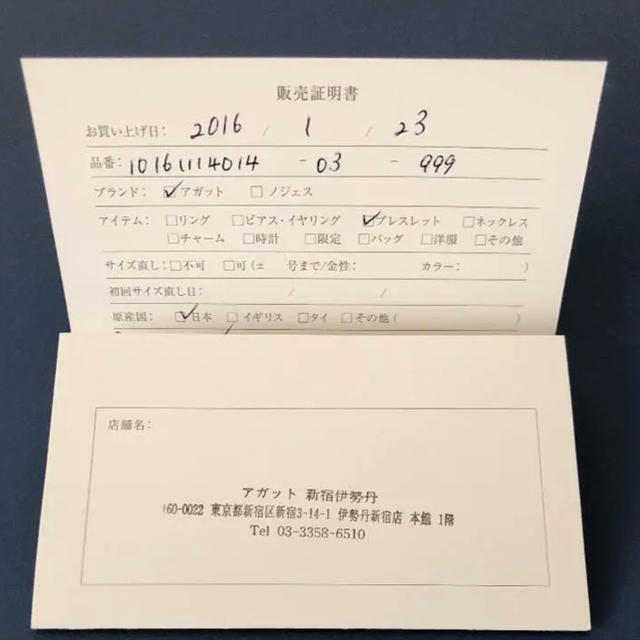 販売証明書
お買い上げ日: 2016 / 1 / 23
品番: 10161114014 - 03 - 999
ブランド: ☑アガット □ノジェス
アイテム: □リング □ピアス・イヤリング ☑ブレスレット □ネックレス
□チャーム □時計 □限定 □バッグ □洋服 □その他
サイズ直し: □不可 □可(± 号まで/金性: カラー: )
初回サイズ直し日: / /
原産国: ☑日本 □イギリス □タイ □その他( )
店舗名:
アガット 新宿伊勢丹
160-0022 東京都新宿区新宿3-14-1 伊勢丹新宿店 本館 1階
Tel 03-3358-6510